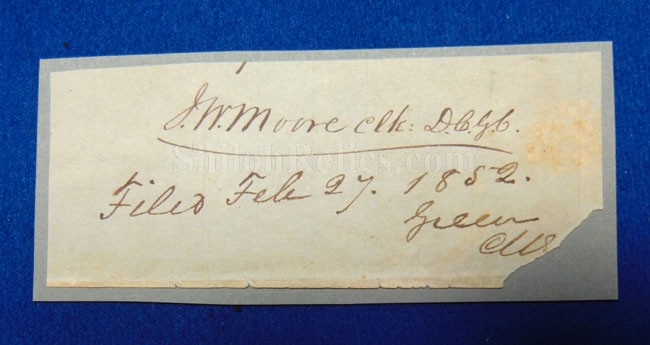 J. W. Moore clk: D.C.G.C.
ShilohRelics.com
Filed Feb 27. 1852.
Green